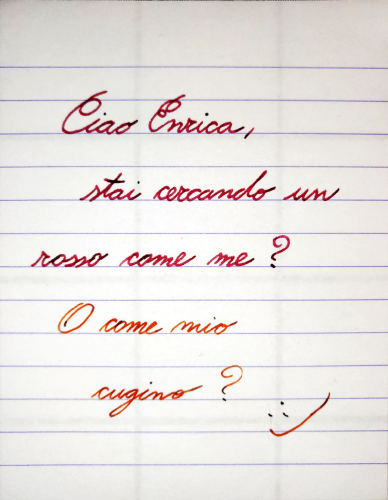 Ciao Enrica,
stai cercando un
rosso come me?
O come mio
cugino?